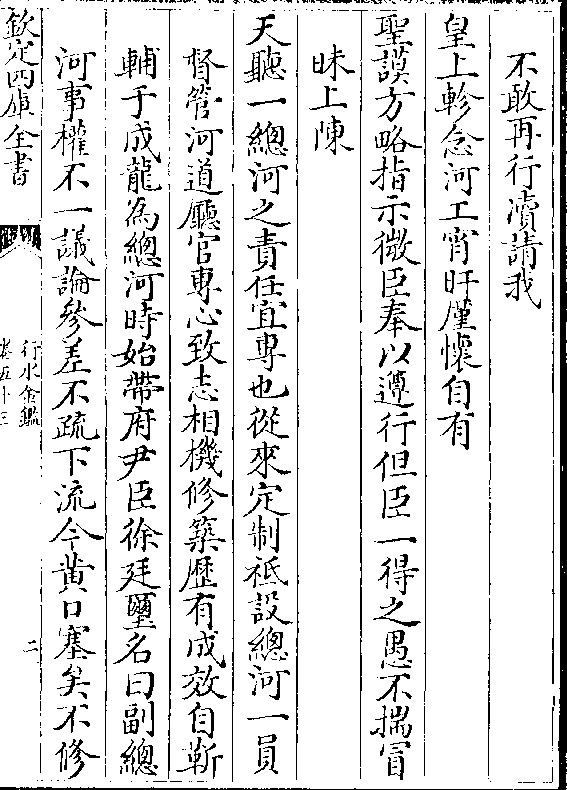 不敢再行凟請我
皇上軫念河工宵旰廑懷自有
聖謨方略指示微臣奉以遵行但臣一得之愚不揣冒
昧上陳
天聽一總河之責任宜専也從來定制祗設總河一員
督管河道廳官専心致志相機修築歴有成效自靳
輔于成龍為總河時始帶府尹臣徐廷璽名曰副總
河事權不一議論參差不疏下流今黄口塞矣不修
欽定四庫全書
行水金鑑
卷五十三
二